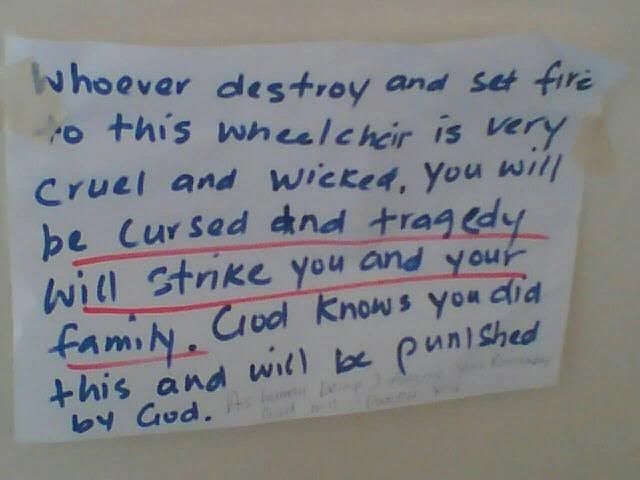 Whoever destroy and set fire
to this wheelchair is very
cruel and wicked, you will
be cursed and tragedy
will strike you and your
family. God knows you did
this and will be punished
by God.
As human being I
God will